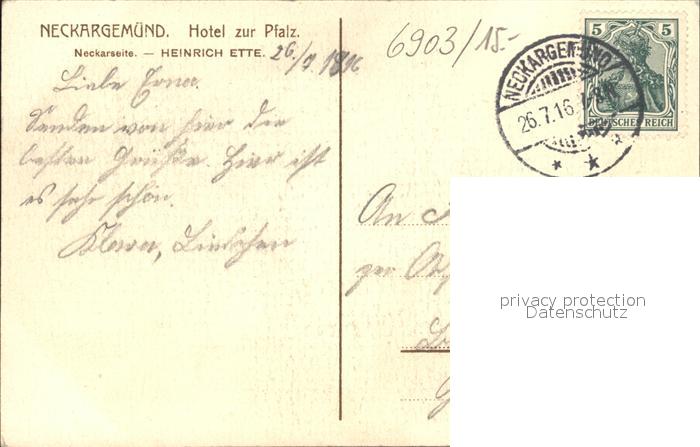 NECKARGEMÜND. Hotel zur Pfalz.
Neckarseite. — HEINRICH ETTE.
26/7 1916
Liebe Erna.
Senden von hier die
besten Grüße. Hier ist
es sehr schön.
Klara, Lieschen
6903/15.-
NECKARGEMÜND
26.7.16.
5 5
DEUTSCHES REICH
An
privacy protection
Datenschutz